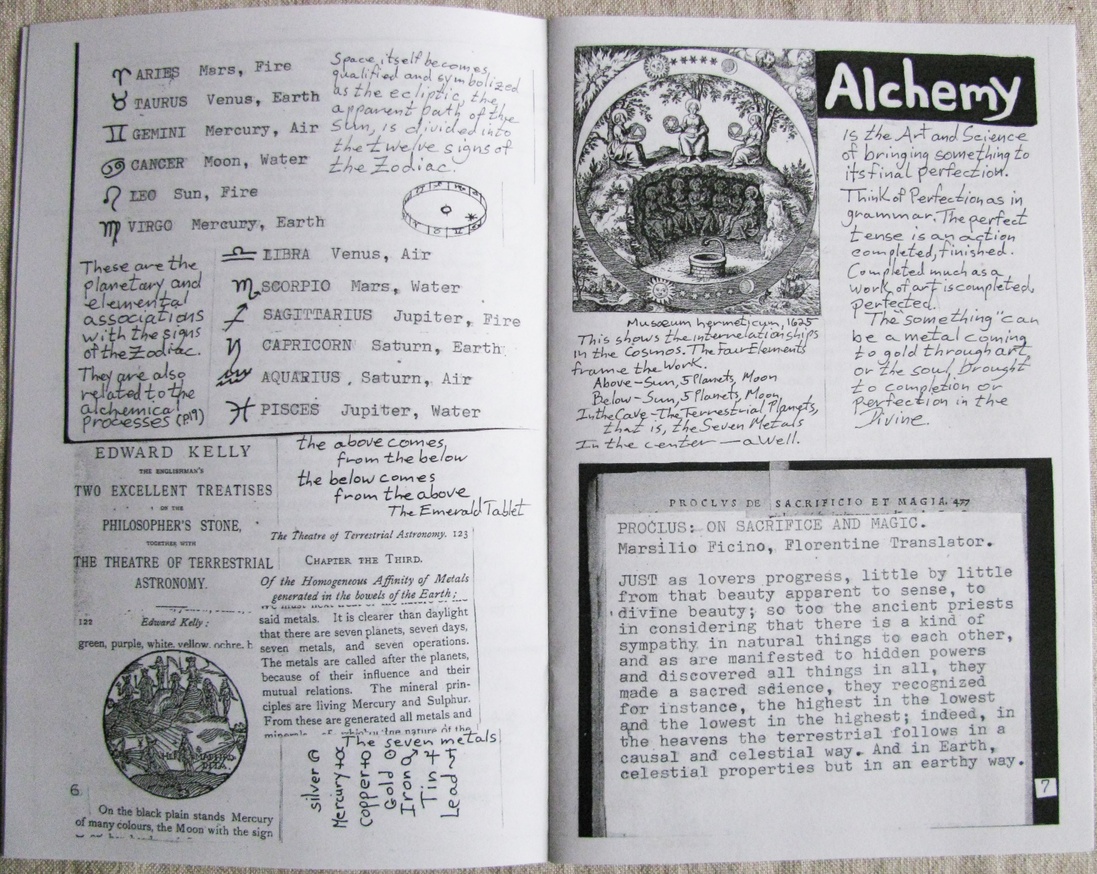 ♈ ARIES Mars, Fire
♉ TAURUS Venus, Earth
♊ GEMINI Mercury, Air
♋ CANCER Moon, Water
♌ LEO Sun, Fire
♍ VIRGO Mercury, Earth
♎ LIBRA Venus, Air
♏ SCORPIO Mars, Water
♐ SAGITTARIUS Jupiter, Fire
♑ CAPRICORN Saturn, Earth
♒ AQUARIUS, Saturn, Air
♓ PISCES Jupiter, Water
Space itself becomes,
qualified and symbolized
as the ecliptic, the
apparent path of the
Sun, is divided into
the twelve signs of
the Zodiac.
These are the
planetary and
elemental
associations
with the signs
of the Zodiac.
They are also
related to the
alchemical
Processes (p.19)
EDWARD KELLY
THE ENGLISHMAN'S
TWO EXCELLENT TREATISES
ON THE
PHILOSOPHER'S STONE,
TOGETHER WITH
THE THEATRE OF TERRESTRIAL
ASTRONOMY.
122 Edward Kelly:
green, purple, white, yellow, ochre,
On the black plain stands Mercury
of many colours, the Moon with the sign
6
the above comes,
from the below
the below comes
from the above
The Emerald Tablet
The Theatre of Terrestrial Astronomy. 123
CHAPTER THE THIRD.
Of the Homogeneous Affinity of Metals
generated in the bowels of the Earth;
said metals. It is clearer than daylight
that there are seven planets, seven days,
seven metals, and seven operations.
The metals are called after the planets,
because of their influence and their
mutual relations. The mineral prin-
ciples are living Mercury and Sulphur.
From these are generated all metals and
minerals, of which the nature of the
The seven metals
silver ☾
Mercury ☿
copper ♀
Gold ☉
Iron ♂
Tin ♃
Lead ♄
Musæum hermeticum, 1625
This shows the interrelationships
in the Cosmos. The Four Elements
frame the Work.
Above - Sun, 5 Planets, Moon
Below - Sun, 5 Planets, Moon,
In the Cave - The Terrestrial Planets,
that is, the Seven Metals
In the center — a Well.
Alchemy
is the Art and Science
of bringing something to
its final perfection.
Think of Perfection as in
grammar. The perfect
tense is an action
completed, finished.
Completed much as a
work of art is completed,
perfected.
The "something" can
be a metal coming
to gold through art
or the soul brought
to completion or
perfection in the
Divine.
PROCLVS DE SACRIFICIO ET MAGIA. 477
PROCLUS: ON SACRIFICE AND MAGIC.
Marsilio Ficino, Florentine Translator.
JUST as lovers progress, little by little
from that beauty apparent to sense, to
divine beauty; so too the ancient priests
in considering that there is a kind of
sympathy in natural things to each other,
and as are manifested to hidden powers
and discovered all things in all, they
made a sacred science, they recognized
for instance, the highest in the lowest
and the lowest in the highest; indeed, in
the heavens the terrestrial follows in a
causal and celestial way. And in Earth,
celestial properties but in an earthy way.
7